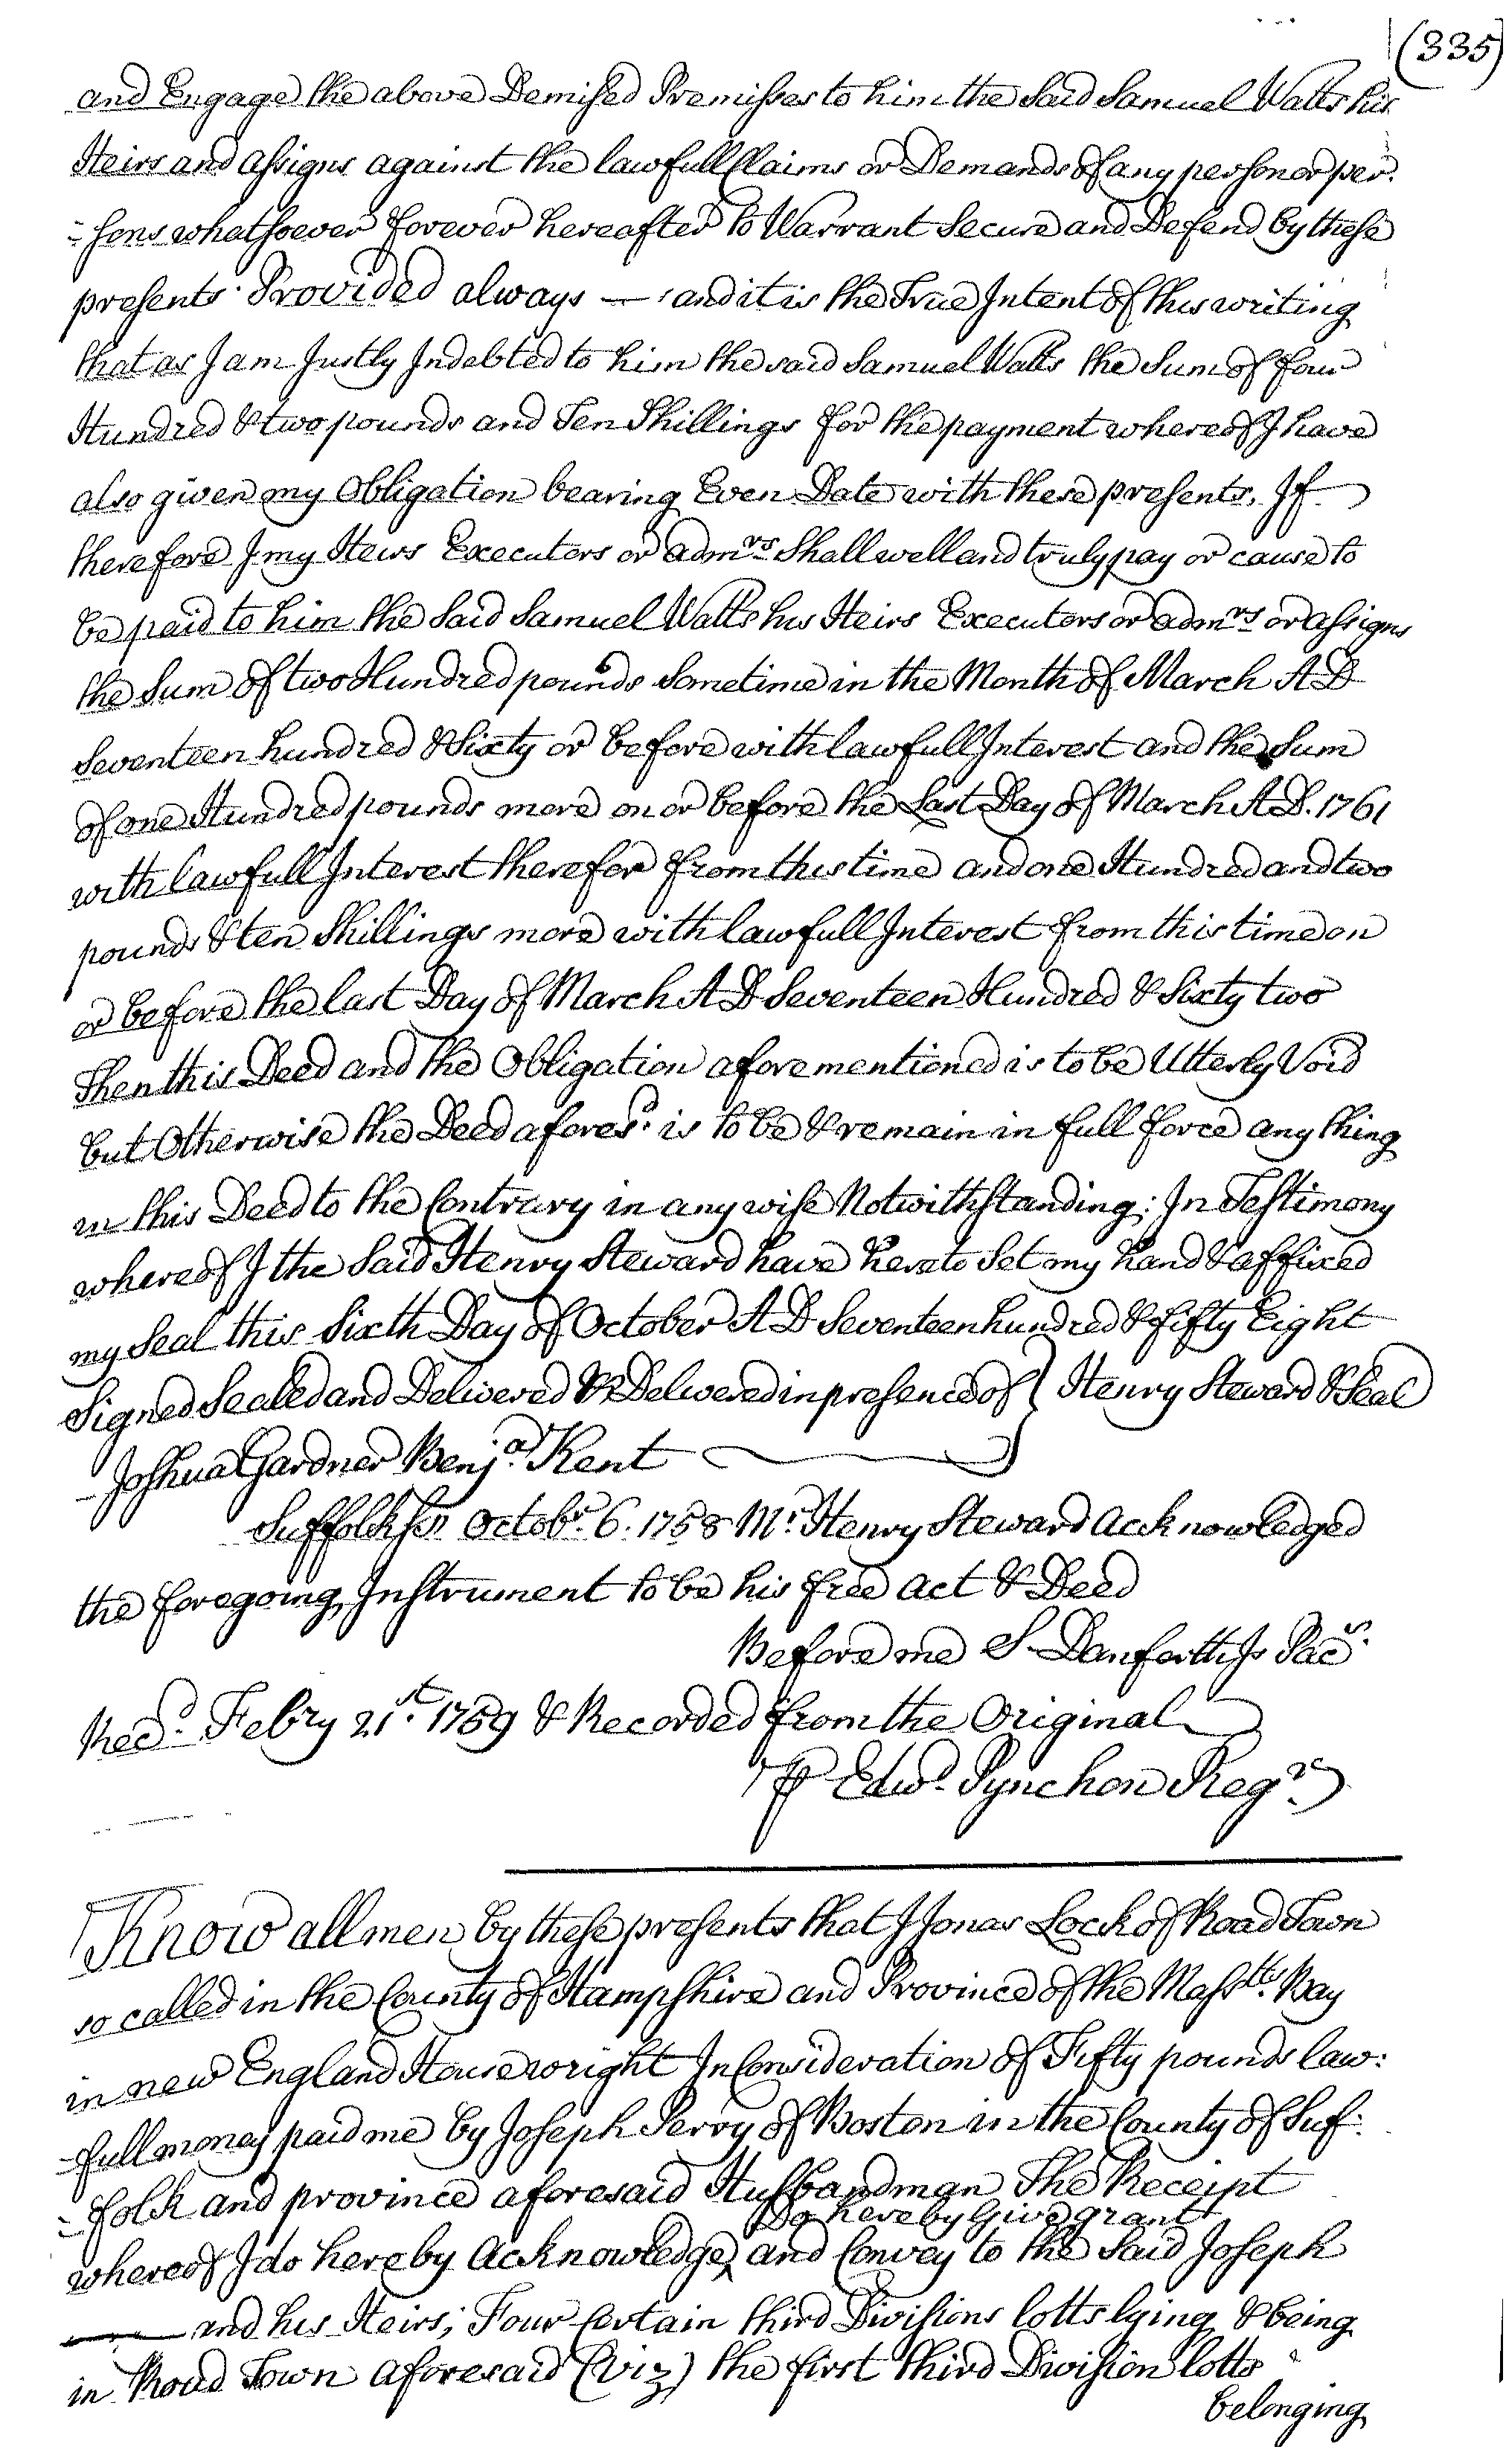 (335)
and Engage the above Demised Premisses to him the Said Samuel Watts his
Heirs and assigns against the lawfull Claims or Demands of any person or per-
-sons whatsoever forever hereafter to Warrant Secure and Defend by these
presents. Provided always — and it is the True Intent of this writing
that as I am Justly Indebted to him the said Samuel Watts the Sum of four
Hundred & two pounds and Ten Shillings for the payment whereof I have
also given my Obligation bearing Even Date with these presents. If
therefore I my Heirs Executors or admrs Shall well and truly pay or cause to
be paid to him the Said Samuel Watts his Heirs Executors or admrs or assigns
the Sum of two Hundred pounds Sometime in the Month of March AD
Seventeen hundred & Sixty or before with lawfull Interest and the Sum
of one Hundred pounds more on or before the Last Day of March AD. 1761
with lawfull Interest therefor from this time and one Hundred and two
pounds & ten Shillings more with lawfull Interest from this time on
or before the last Day of March AD Seventeen Hundred & Sixty two
Then this Deed and the Obligation aforementioned is to be Utterly Void
but Otherwise the Deed aforesd. is to be & remain in full force any thing
in this Deed to the Contrary in any wise Notwithstanding: In Testimony
whereof I the Said Henry Steward have hereto Set my hand & affixed
my Seal this Sixth Day of October AD Seventeen hundred & fifty Eight
Signed Sealed and Delivered & Delivered in presence of } Henry Steward & Seal
Joshua Gardner Benja. Kent
Suffolk ss Octobr. 6. 1758 Mr. Henry Steward Acknowledged
the foregoing Instrument to be his free act & Deed
Before me S. Danforth Js Pacs.
Recd. Febry 21st. 1759 & Recorded from the Original
P Edwd. Pynchon Regr.
Know all men by these presents that I Jonas Lock of Road Town
so called in the County of Hampshire and Province of the Massts. Bay
in new England Housewright In Consideration of Fifty pounds law:
-full money paid me by Joseph Perry of Boston in the County of Suf:
-folk and province aforesaid Husbandman The Receipt
Do hereby Give grant
whereof I do hereby Acknowledge, and Convey to the Said Joseph
and his Heirs; Four Certain third Divisions lotts lying & being
in Road Town aforesaid (viz) the first third Division lotts
belonging